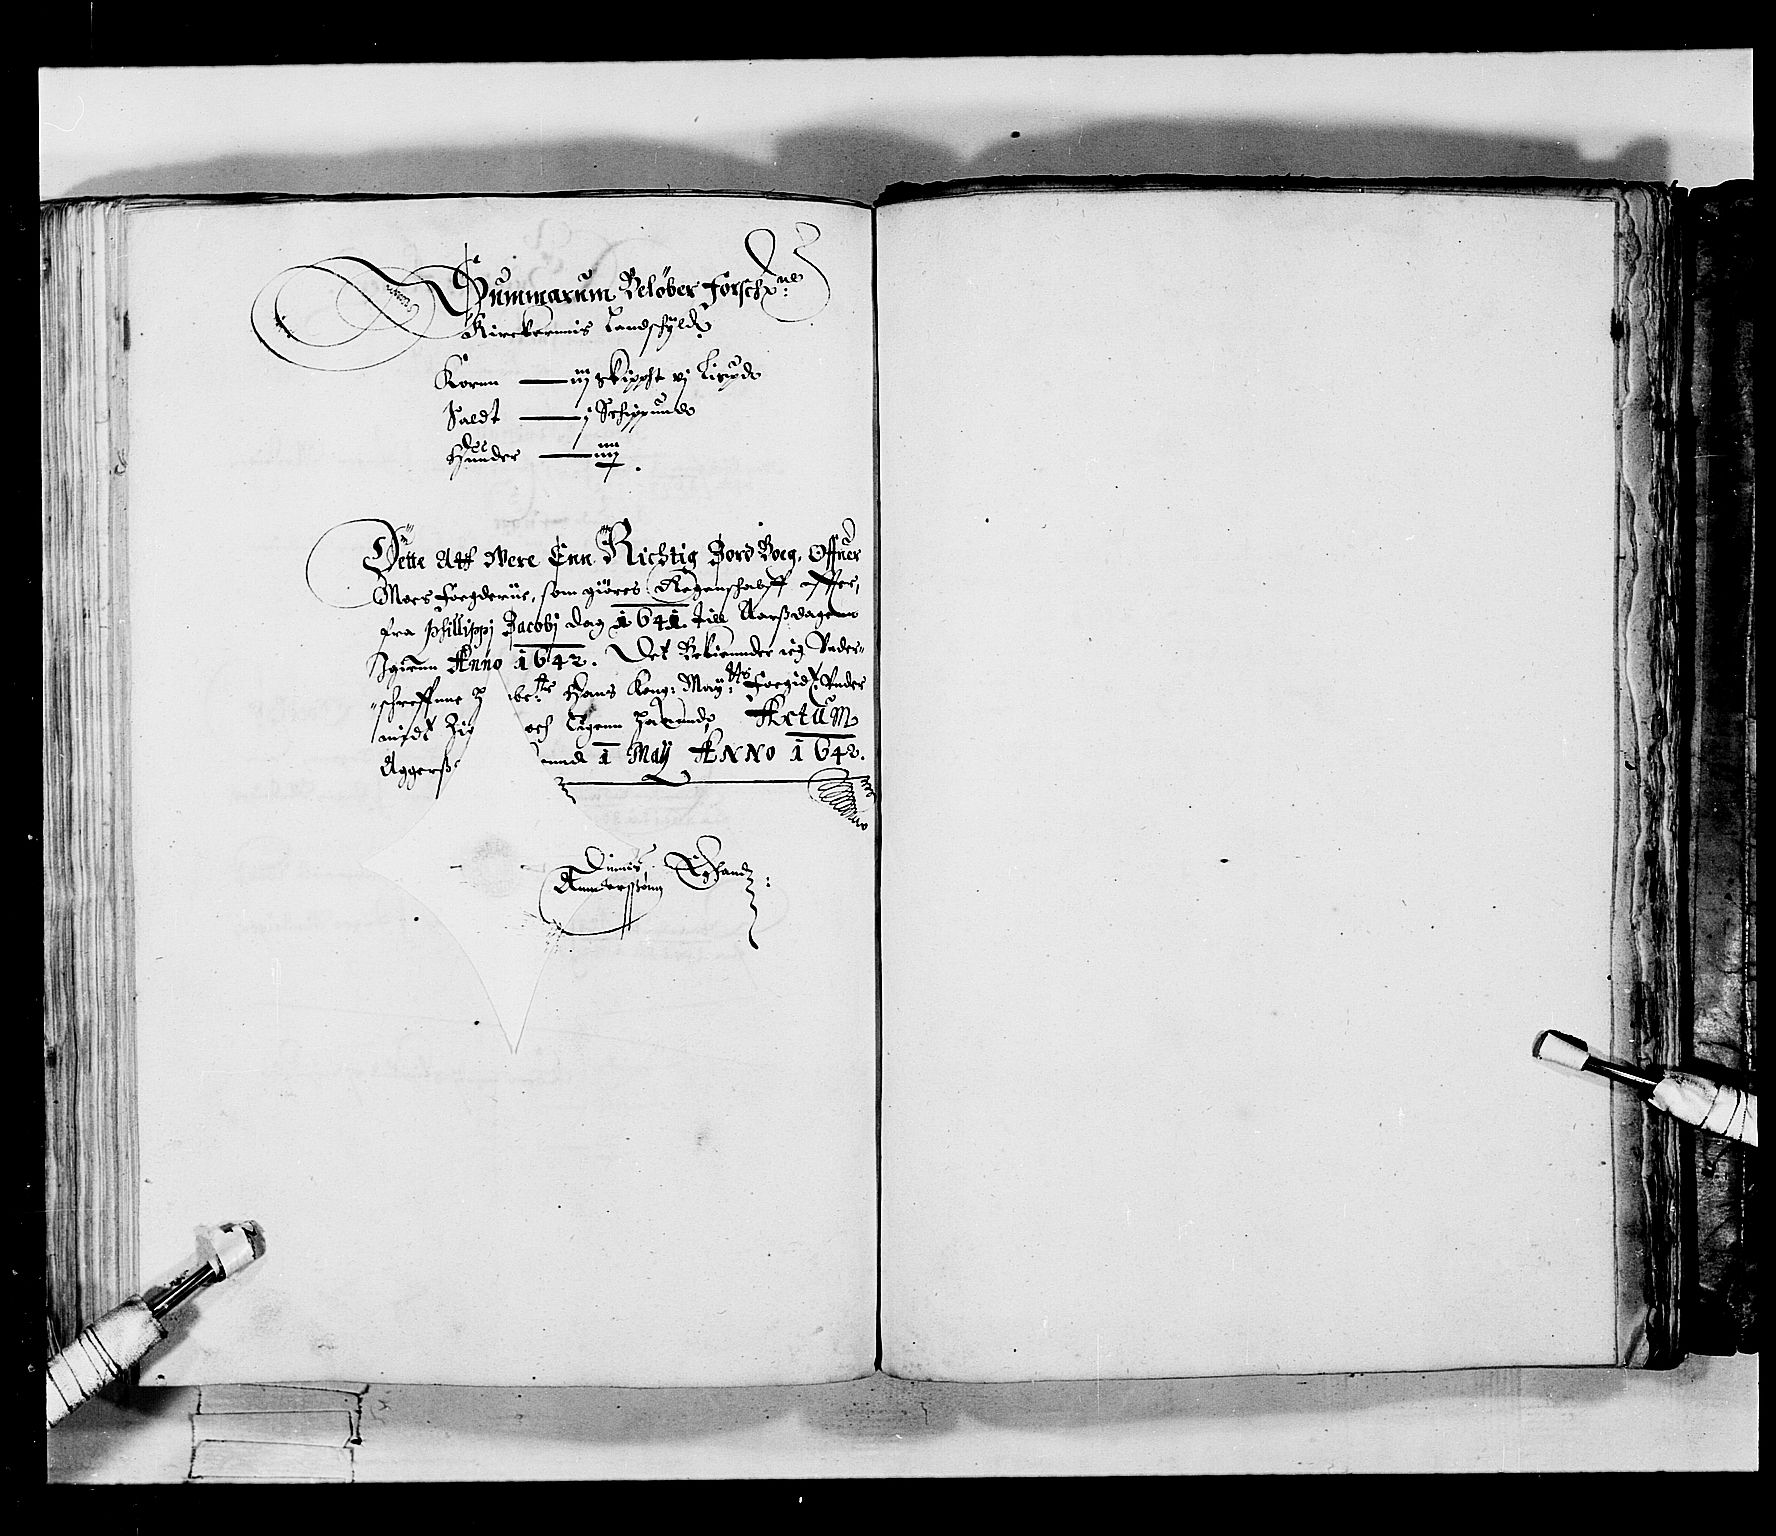 Summarum Beløber forschr:ne
Kirckernnis Landschyld
Korn iiij skippht vj Lispd
Saldt j Schippund
Huuder iiij
Dette Att Were Enn Richtig Jord Boeg, Offuer
Moes foegderiie, som giöres Regenschabff offer,
fra Phillippj Jacobj dag 1641 till Aarßdagenn
Igienn Anno 1642. Det Bekiennder ieg Vnder-
schreffne Hans Kong: May:tts foegid Vnder
mit och Eigenn Haanndt, Actum
Aggerß 1 May ANNO 1642.
Annderssönn